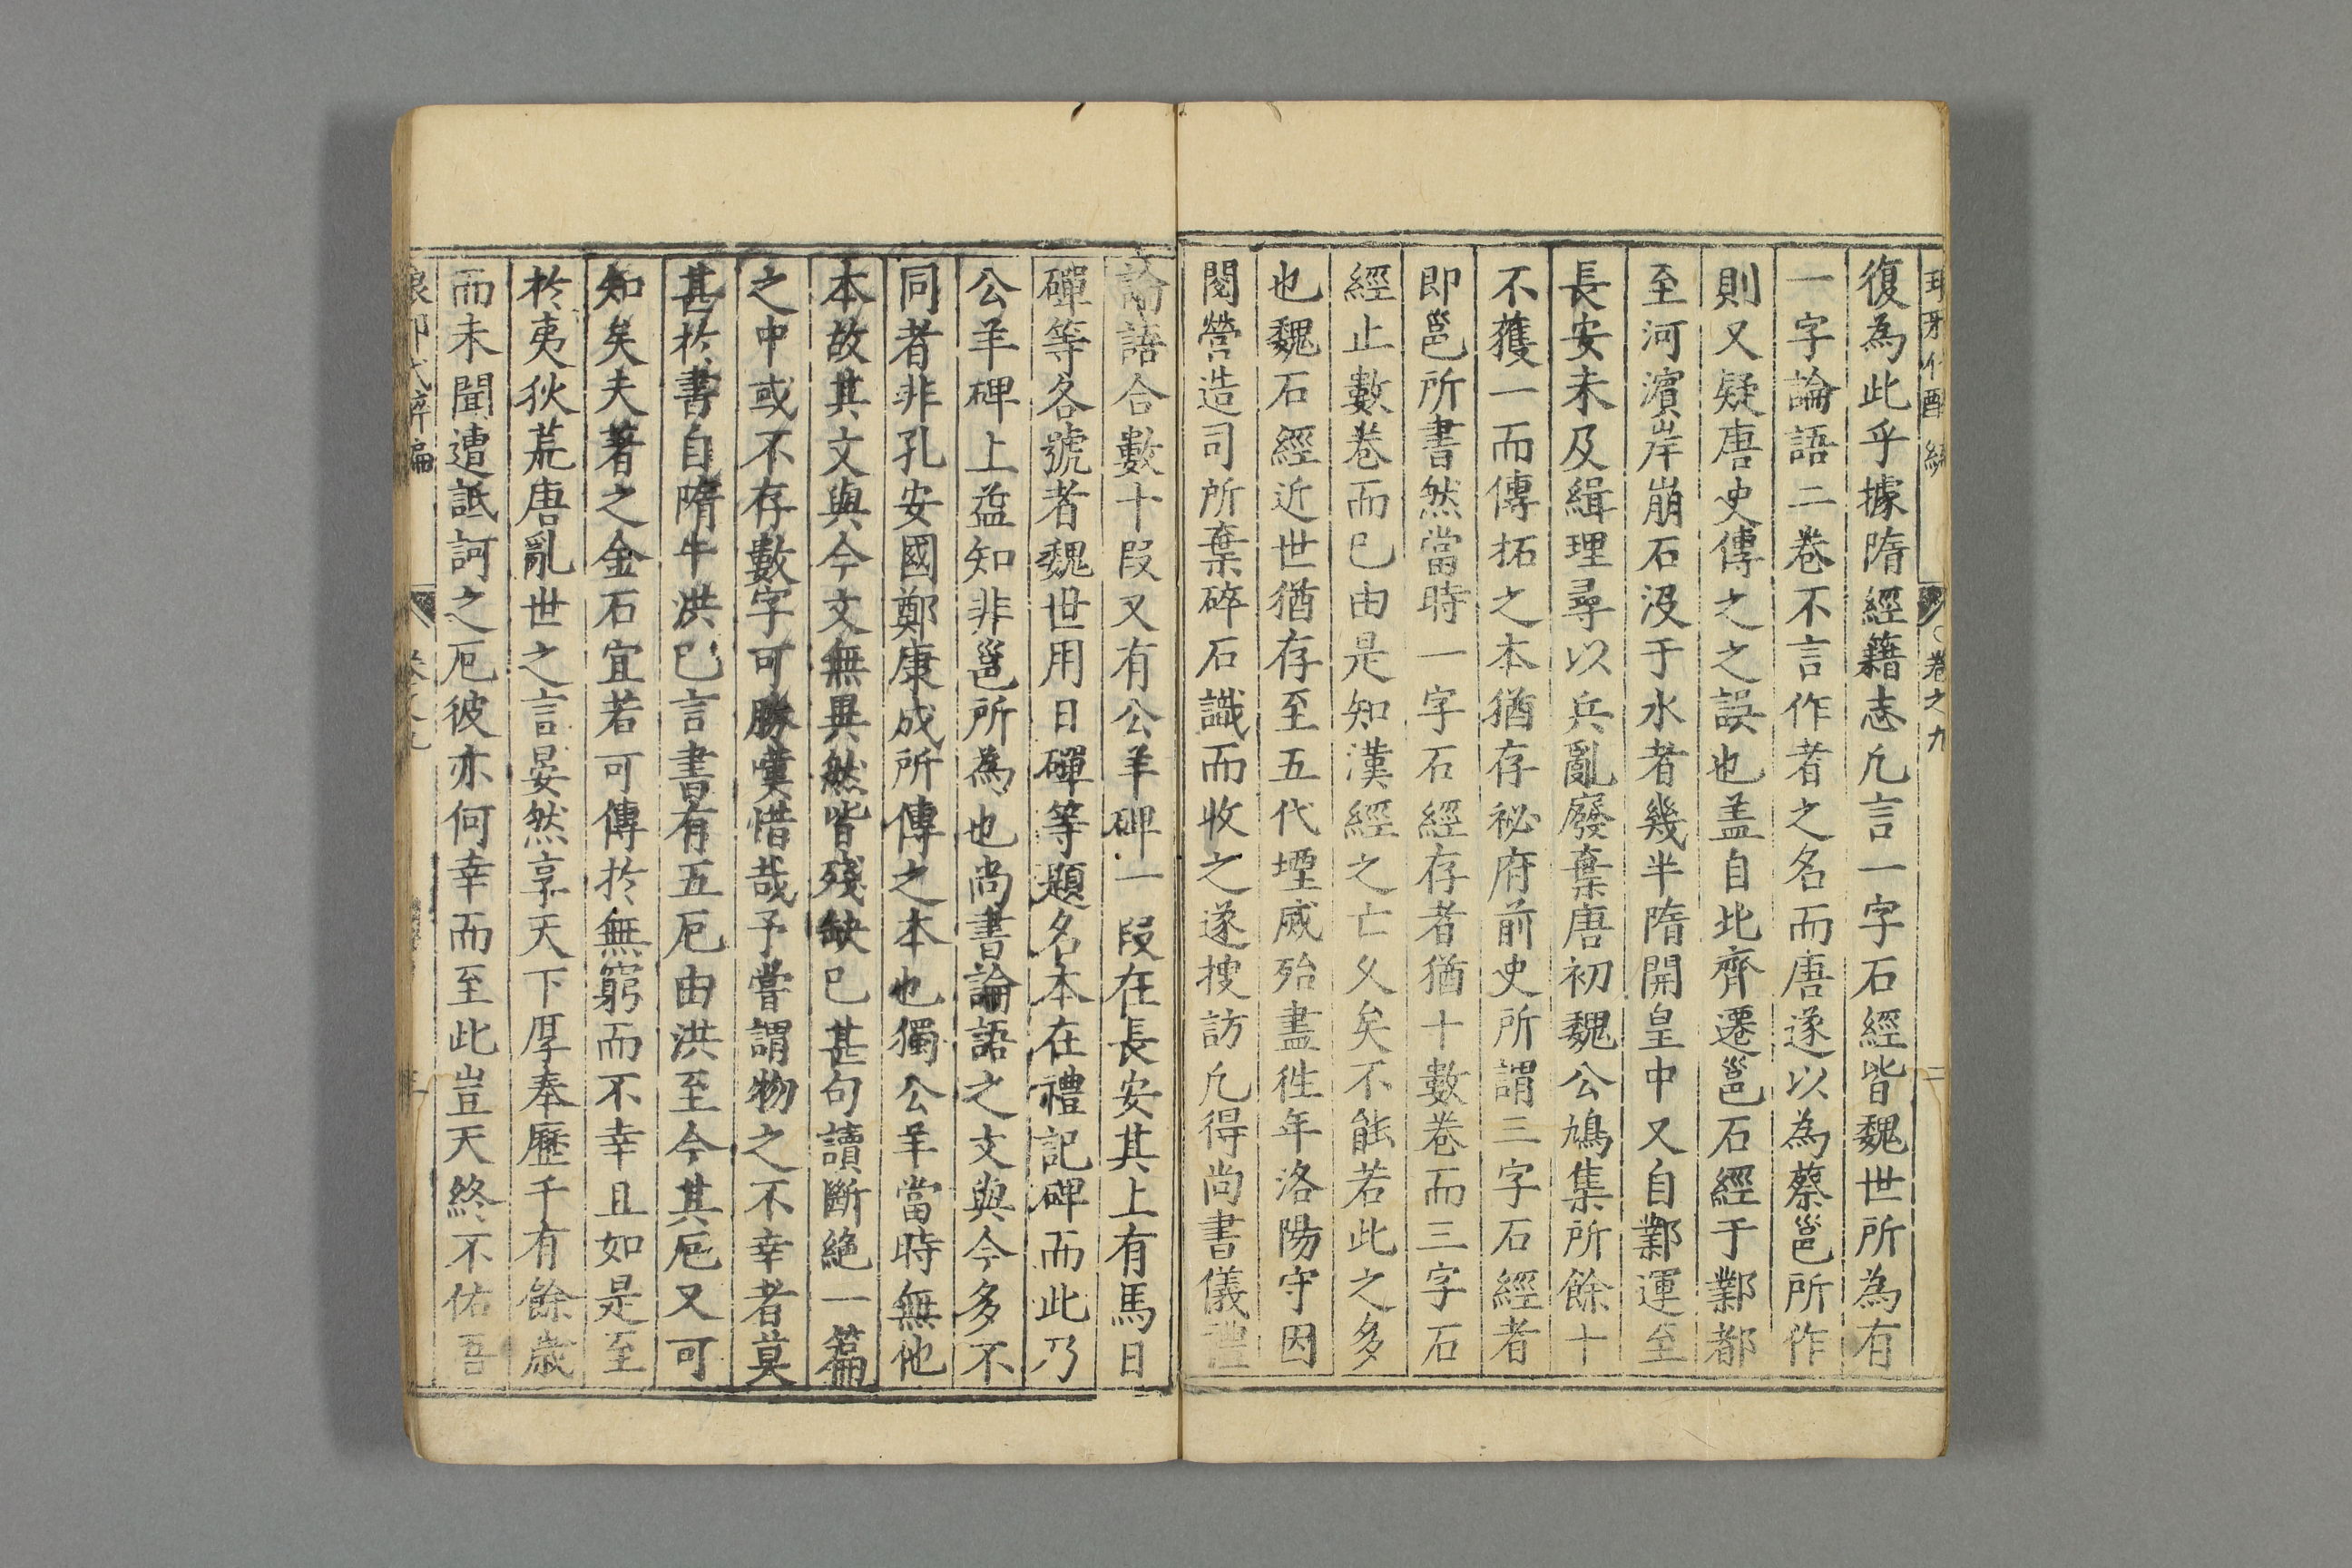 卷之九
二
復為此乎據隋經籍志凢言一字石經皆魏世所為有
一字論語二卷不言作者之名而唐遂以為蔡邕所作
則又疑唐史傳之之誤也盖自北齊遷邕石經于鄴都
至河濵岸崩石没于水者幾半隋開皇中又自鄴運至
長安未及緝理尋以兵亂廢棄唐初魏公鳩集所餘十
不獲一而傳拓之本猶存祕府前史所謂三字石經者
即邕所書然當時一字石經存者猶十數卷而三字石
經止數卷而已由是知漢經之亡乆矣不能若此之多
也魏石經近世猶存至五代堙㓕殆盡徃年洛陽守因
閱營造司所棄碎石識而收之遂搜訪凢得尚書儀禮
論語合數十叚又有公羊碑一叚在長安其上有馬日
磾等各號者魏世用日磾等題名本在禮記碑而此乃
公羊碑上益知非邕所為也尚書論語之文與今多不
同者非孔安國鄭康成所傳之本也獨公羊當時無他
本故其文與今文無異然皆殘缺已甚句讀斷絶一篇
之中或不存數字可勝嘆惜哉予嘗謂物之不幸者莫
甚於書自隋牛洪已言書有五厄由洪至今其厄又可
知矣夫著之金石宜若可傳於無窮而不幸且如是至
於夷狄荒唐亂世之言晏然享天下厚奉歷千有餘歲
而未聞遭詆訶之厄彼亦何幸而至此豈天終不佑吾